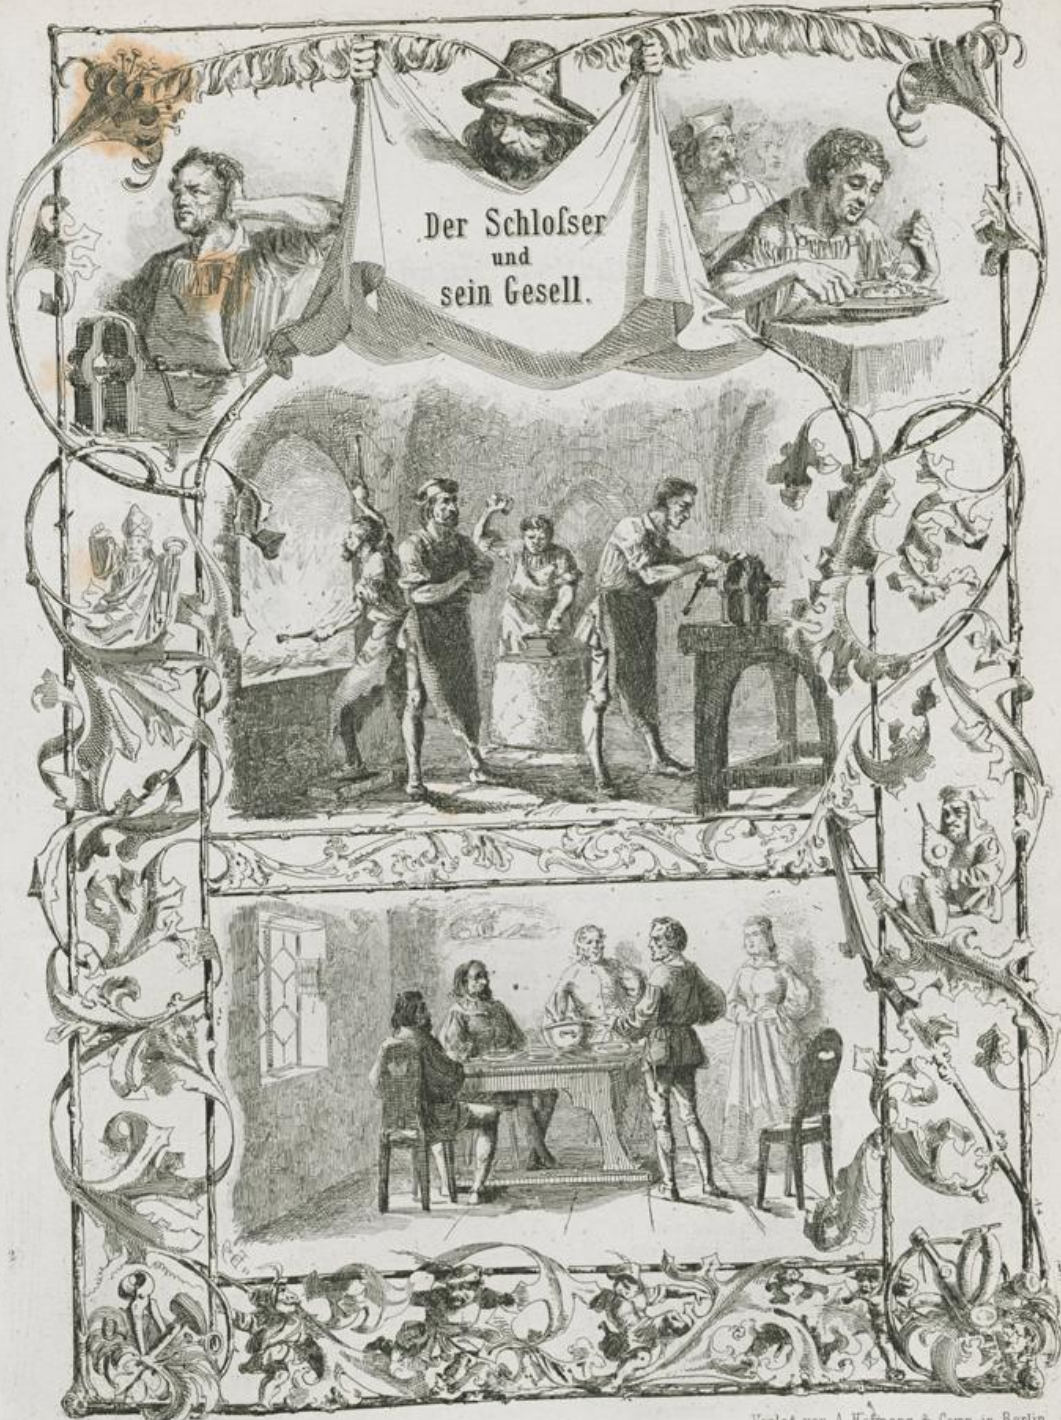 Der Schloſser
und
sein Gesell.
Verlag von A. Hofmann & Comp. in Berlin.